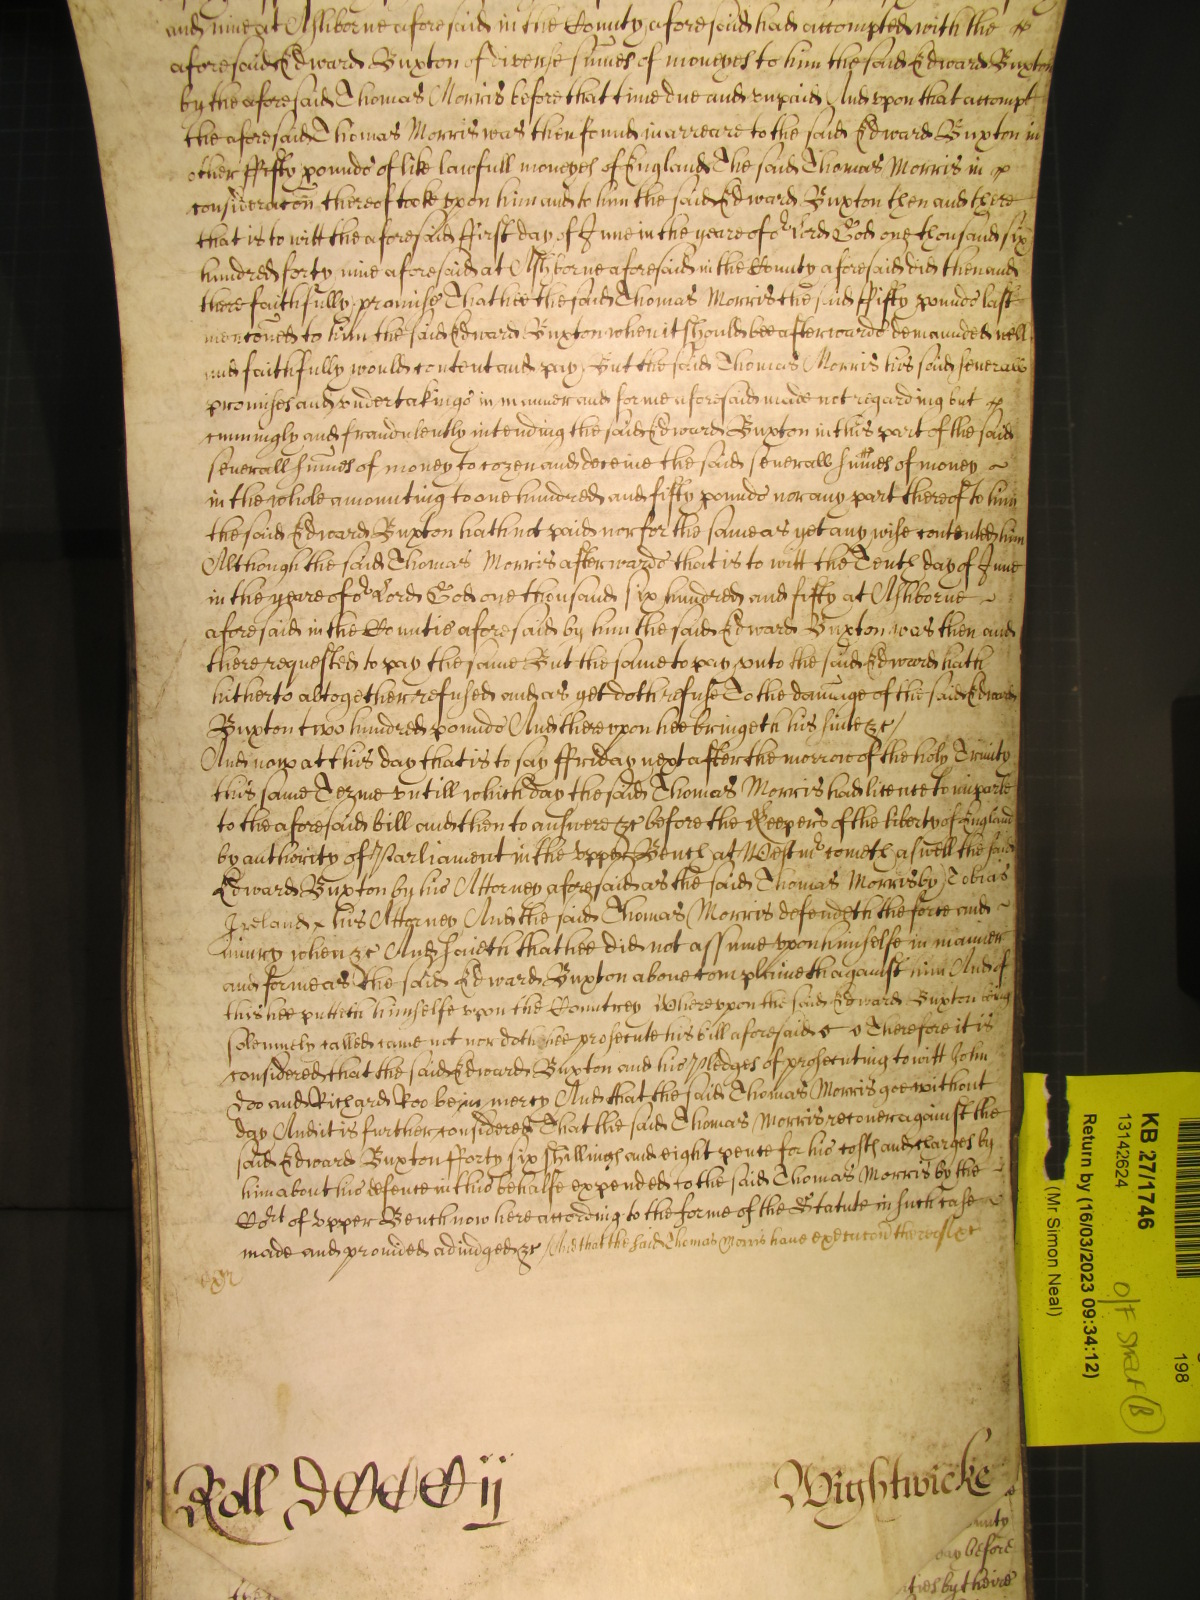 and nine at Ashborne aforesaid in the County aforesaid had attompted with the
aforesaid Edward Buxton of diverse sumes of moneyes to him the said Edward Buxton
by the aforesaid Thomas Morris before that time due and unpaid And upon that attompt
the aforesaid Thomas Morris was then found in arreare to the said Edward Buxton in
other ffifty pounds of like lawfull moneyes of England The said Thomas Morris in
consideracon thereof tooke upon him and to him the said Edward Buxton then and there
that is to witt the aforesaid ffirst day of June in the yeare of or Lord God one thousand six
hundred forty nine aforesaid at Ashborne aforesaid in the County aforesaid did then and
there faithfully promise That hee the said Thomas Morris the said ffifty pounds last
menconed to him the said Edward Buxton when it should bee afterwards demaunded well
and faithfully would content and pay But the said Thomas Morris his said severall
promises and undertakings in manner and forme aforesaid made not regarding but
cunningly and fraudulently intending the said Edward Buxton in this part of the said
severall sumes of money to cozen and deceive the said severall sumes of money
in the whole amounting to one hundred and fifty pounds nor any part thereof to him
the said Edward Buxton hath not paid nor for the same as yet any wise contented him
Although the said Thomas Morris afterwards that is to witt the Tenth day of June
in the yeare of or Lord God one thousand six hundred and fifty at Ashborne
aforesaid in the Countie aforesaid by him the said Edward Buxton was then and
there requested to pay the same But the same to pay unto the said Edward hath
hitherto altogether refused and as yet doth refuse To the damage of the said Edward
Buxton two hundred pounds And thereupon hee bringeth his suite &c
And now at this day that is to say ffriday next after the morrow of the holy Trinity
this same Terme untill which day the said Thomas Morris had licence to imparle
to the aforesaid bill and then to answere &c before the Keepers of the liberty of England
by authority of Parliament in the upper Bench at Westmr cometh aswell the said
Edward Buxton by his Attorney aforesaid as the said Thomas Morris by Tobias
Ireland his Attorney And the said Thomas Morris defendeth the force and
iniury when &c And saieth that hee did not assume upon himselfe in manner
and forme as the said Edward Buxton above complaineth against him And of
this hee putteth himselfe upon the Countrey Whereupon the said Edward Buxton being
solemnely called came not nor doth hee prosecute his bill aforesaid Therefore it is
considered that the said Edward Buxton and his Pledges of prosecuting to witt John
Doo and Richard Roo be in mercy And that the said Thomas Morris goe without
day And it is further considered That the said Thomas Morris recover against the
said Edward Buxton fforty six shillings and eight pence for his costs and charges by
him about his defence in this behalfe expended to the said Thomas Morris by the
Cort of upper Bench now here according to the forme of the Statute in such case
made and provided adiudged &c And that the said Thomas Morris have execucon thereof &c
Roll DCCCCij
Wightwicke
ounty
day before
by theire
KB 27/1746
13142624
Return by (16/03/2023 09:34:12)
(Mr Simon Neal)
198